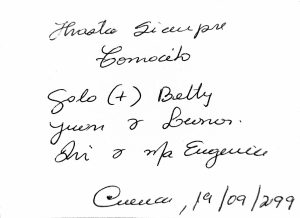 Hasta Siempre
Comocito
Golo (+) Betty
Juan y Leonor.
y Ma Eugenia
Cuenca, 19/09/299